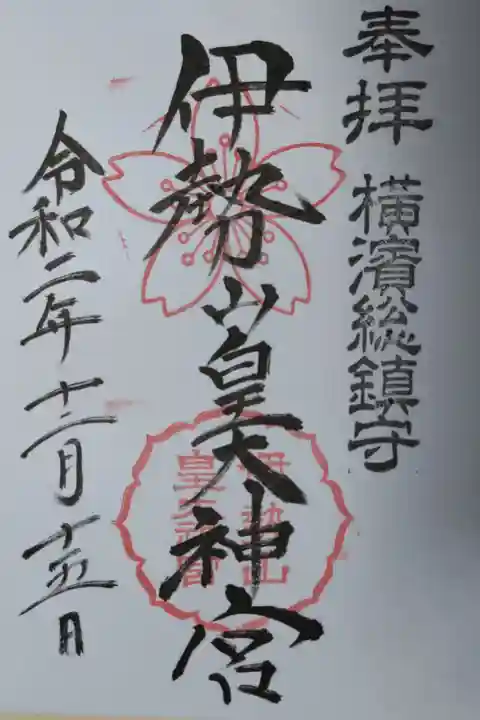 奉拝 横濱総鎮守
伊勢山皇大神宮
伊勢山
皇大神宮
令和二年十二月十五日